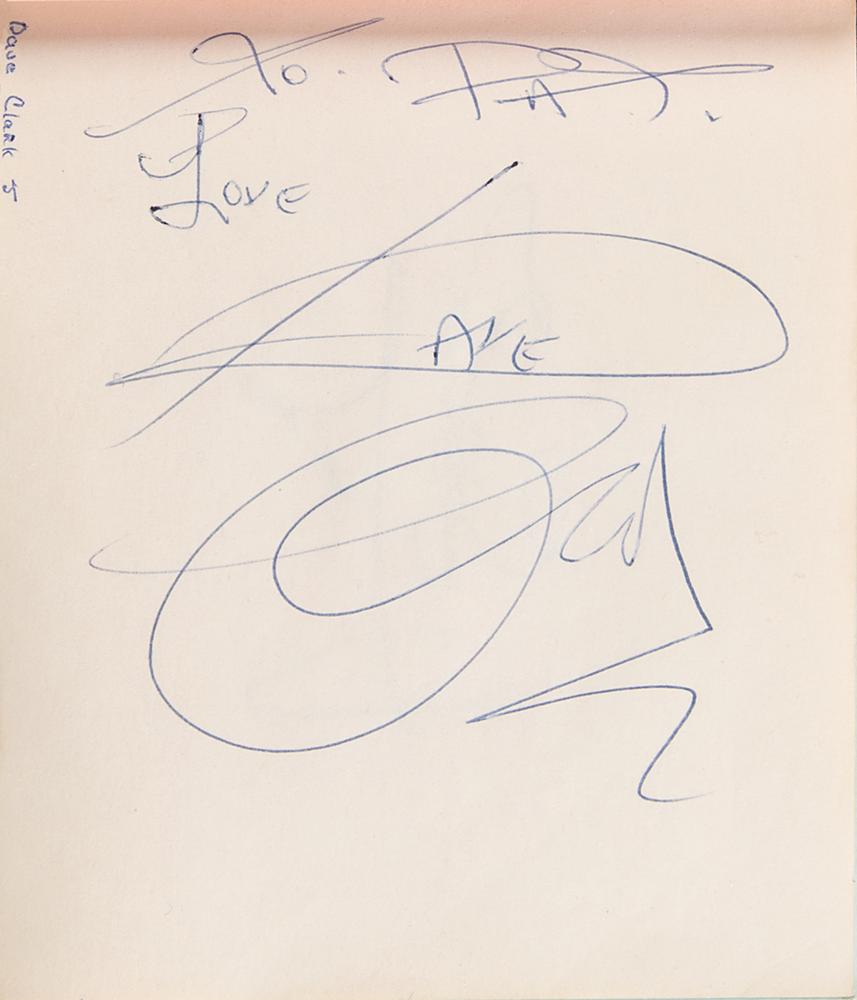 Dave Clark 5
To. PAT.
LOVE
DAVE